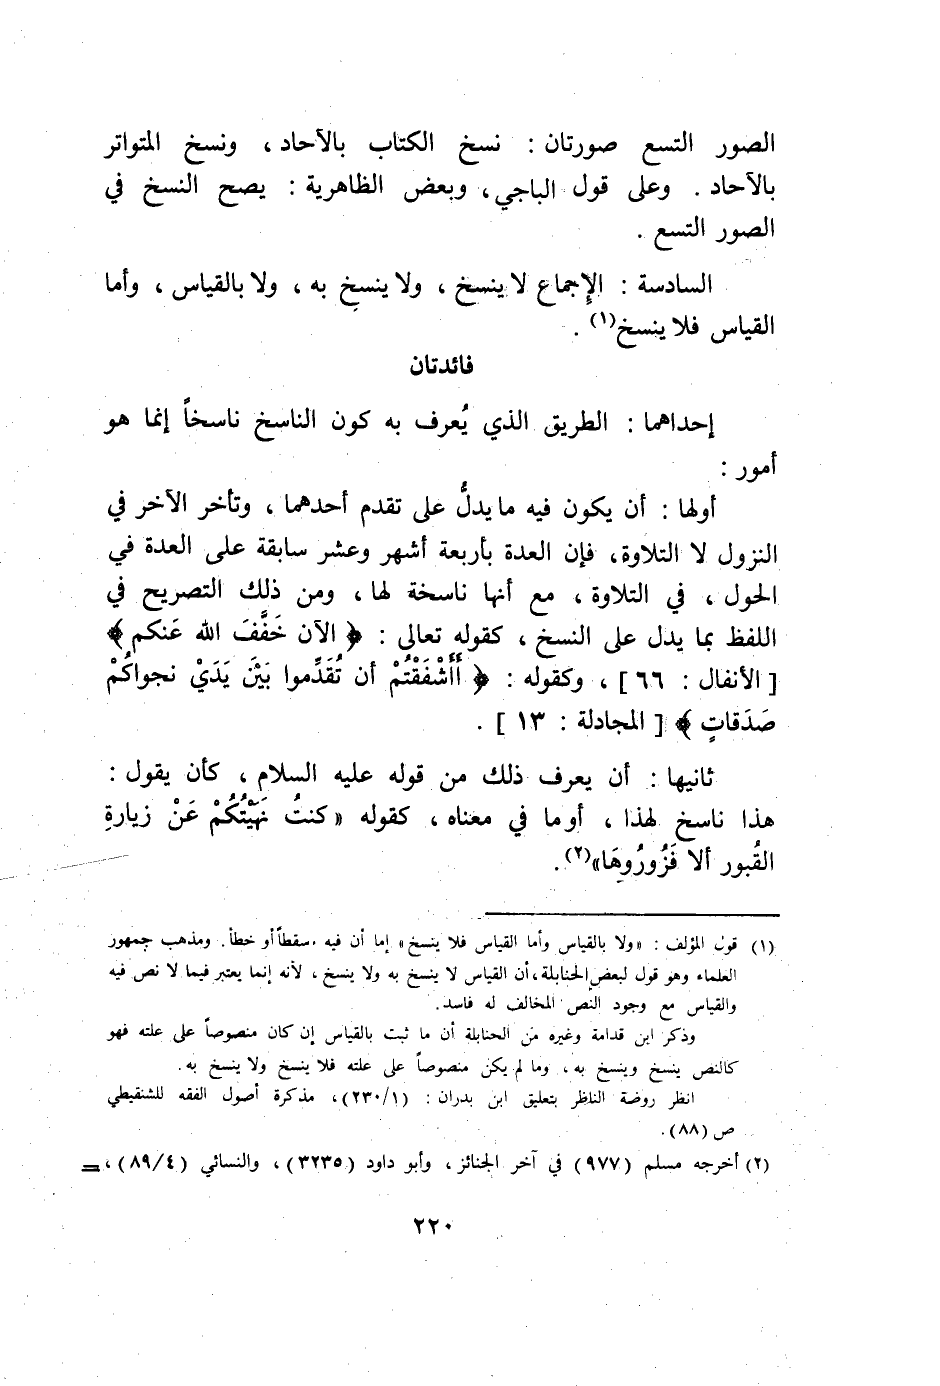 الصور التسع صورتان : نسخ الكتاب بالآحاد ، ونسخ المتواتر
بالآحاد . وعلى قول الباجي ، وبعض الظاهرية : يصح النسخ في
الصور التسع .
السادسة : الإجماع لا ينسخ ، ولا ينسخ به ، ولا بالقياس ، وأما
القياس فلا ينسخ(١) .
فائدتان
إحداهما : الطريق الذي يُعرف به كون الناسخ ناسخاً إنما هو
أمور :
أولها : أن يكون فيه ما يدلُّ على تقدم أحدهما ، وتأخر الآخر في
النزول لا التلاوة ، فإن العدة بأربعة أشهر وعشر سابقة على العدة في
الحول ، في التلاوة ، مع أنها ناسخة لها ، ومن ذلك التصريح في
اللفظ بما يدل على النسخ ، كقوله تعالى : ﴿ الآن خَفَّفَ الله عَنكم ﴾
[ الأنفال : ٦٦ ] ، وكقوله : ﴿ أَأَشْفَقْتُمْ أن تُقَدِّموا بَيْنَ يَدَيْ نجواكُمْ
صَدَقاتٍ ﴾ [ المجادلة : ١٣ ] .
ثانيها : أن يعرف ذلك من قوله عليه السلام ، كأن يقول :
هذا ناسخ لهذا ، أو ما في معناه ، كقوله «كنتُ نَهَيْتُكُمْ عَنْ زيارةِ
القُبور ألا فَزُورُوهَا»(٢) .
(١) قول المؤلف : «ولا بالقياس وأما القياس فلا ينسخ» إما أن فيه سقطاً أو خطأ . ومذهب جمهور
العلماء وهو قول لبعض الحنابلة ، أن القياس لا ينسخ به ولا ينسخ ، لأنه إنما يعتبر فيما لا نص فيه
والقياس مع وجود النص المخالف له فاسد .
وذكر ابن قدامة وغيره من الحنابلة أن ما ثبت بالقياس إن كان منصوصاً على علته فهو
كالنص ينسخ وينسخ به ، وما لم يكن منصوصاً على علته فلا ينسخ ولا ينسخ به .
انظر روضة الناظر بتعليق ابن بدران : (٢٣٠/١) ، مذكرة أصول الفقه للشنقيطي
ص (٨٨) .
(٢) أخرجه مسلم (٩٧٧) في آخر الجنائز ، وأبو داود (٣٢٣٥) ، والنسائي (٨٩/٤) ، =
٢٢٠